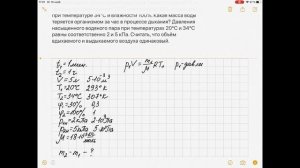 при температуре 34°С и влажности 100%. Какая масса воды
теряется организмом за час в процессе дыхания? Давления
насыщенного водяного пара при температурах 20°С и 34°С
равны соответственно 2 и 5 кПа. Считать, что объём
вдыхаемого и выдыхаемого воздуха одинаковый.
t₁ = 1 мин.
t₂ = 1 ч
V = 5 л 5·10⁻³
T₁ = 20°С 293°К
T₂ = 34°С 307°К
φ₁ = 30% 0,3
φ₂ = 100% 1
= 2 кПа 2·10³ Па
= 5 кПа 5
μ = 18·10⁻³
m₂ - m₁ - ?
p₁V = m₁/μ RT₁
p₁ - давл